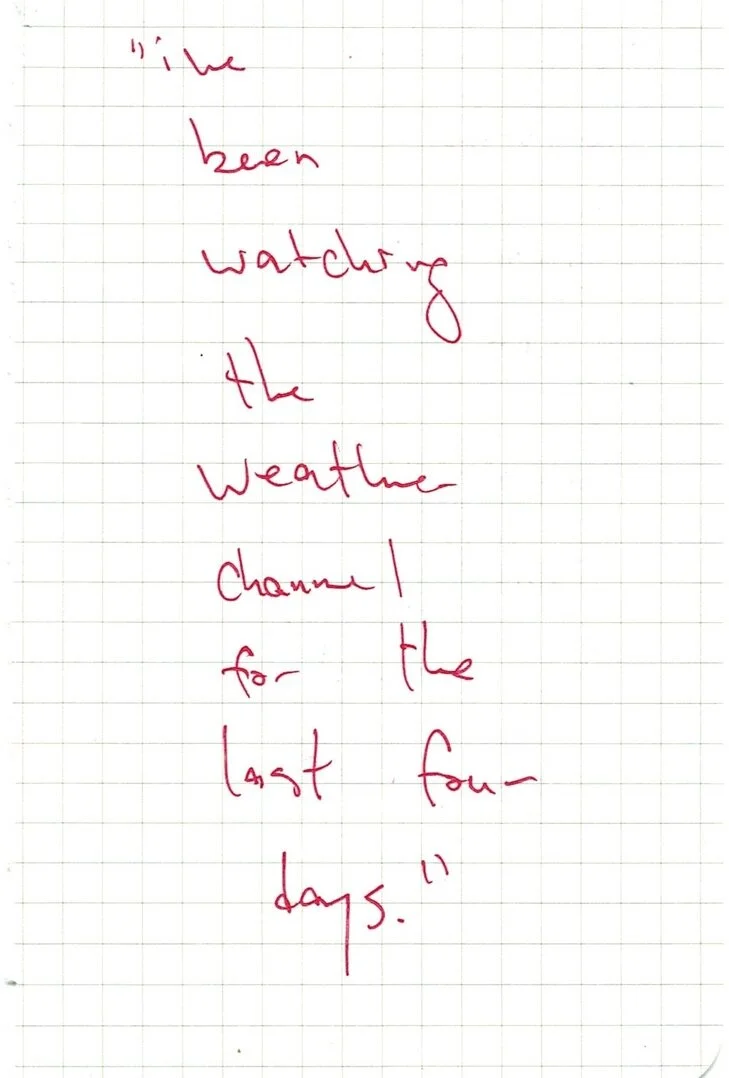 "i've
been
watching
the
weather
channel
for the
last four
days."